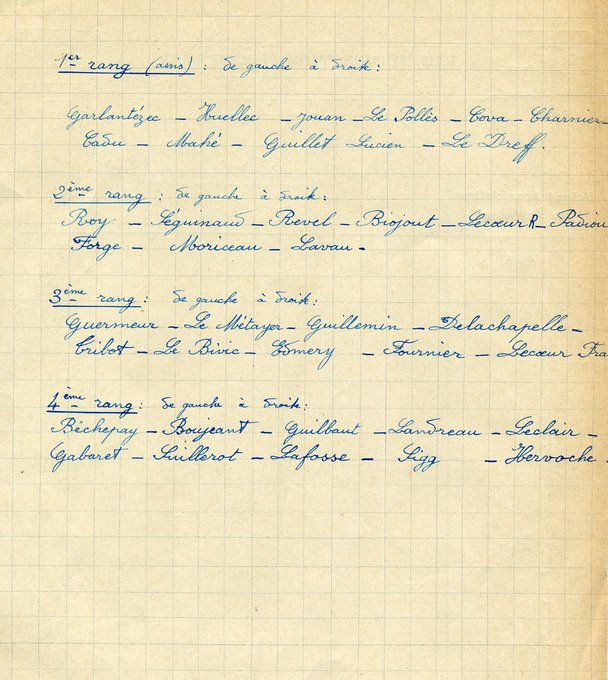 1er rang (assis) : de gauche à droite :
Garlantézec - Huellec - Jouan - Le Pollès - Cova - Charnier -
Cadu - Mahé - Guillet Lucien - Le Dreff.
2ème rang : de gauche à droite :
Roy - Séguinaud - Revel - Biojout - Lecœur R - Padiou
Forge - Moriceau - Lavau -
3ème rang : de gauche à droite :
Guermeur - Le Métayer - Guillemin - Delachapelle -
Tribot - Le Bivic - Edmery - Fournier - Lecœur Fra
4ème rang : de gauche à droite :
Béchepay - Boujeant - Guilbaut - Landreau - Leclair -
Gabaret - Luillerot - Lafosse - Sigg - Hervoche -